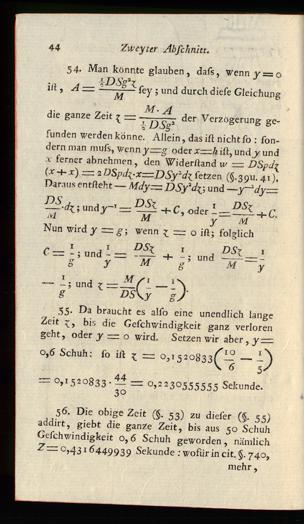 44 Zweyter Abſchnitt.
54. Man könnte glauben, daſs, wenn y = 0
iſt, A = ½DSg²ζ / M ſey; und durch dieſe Gleichung
die ganze Zeit ζ = M. A / ½ DSg² der Verzögerung ge-
funden werden könne. Allein, das iſt nicht ſo: ſon-
dern man muſs, wenn y=g oder x=h iſt, und y und
x ferner abnehmen, den Widerſtand w = DSpdζ
(x + x) = 2DSpdζ.x=DSy²dζ ſetzen (§.39u. 41).
Daraus entſteht — Mdy= DSy²dζ; und —y⁻²dy=
DS/M . dζ; und y⁻¹ = DSζ/M + C, oder 1/y = DSζ/M + C.
Nun wird y = g; wenn ζ = 0 iſt; folglich
C = 1/g; und 1/y = DSζ/M + 1/g; und DSζ/M = 1/y
— 1/g; und ζ = M/DS (1/y — 1/g).
55. Da braucht es alſo eine unendlich lange
Zeit ζ, bis die Geſchwindigkeit ganz verloren
geht, oder y = 0 wird. Setzen wir aber, y =
0,6 Schuh: ſo iſt ζ = 0,1520833 (10/6 — 1/5)
= 0,1520833 . 44/30 = 0,2230555555 Sekunde.
56. Die obige Zeit (§. 53) zu dieſer (§. 55)
addirt, giebt die ganze Zeit, bis aus 50 Schuh
Geſchwindigkeit 0,6 Schuh geworden, nämlich
Z = 0,4316449939 Sekunde: wofür in cit. §. 740,
mehr,